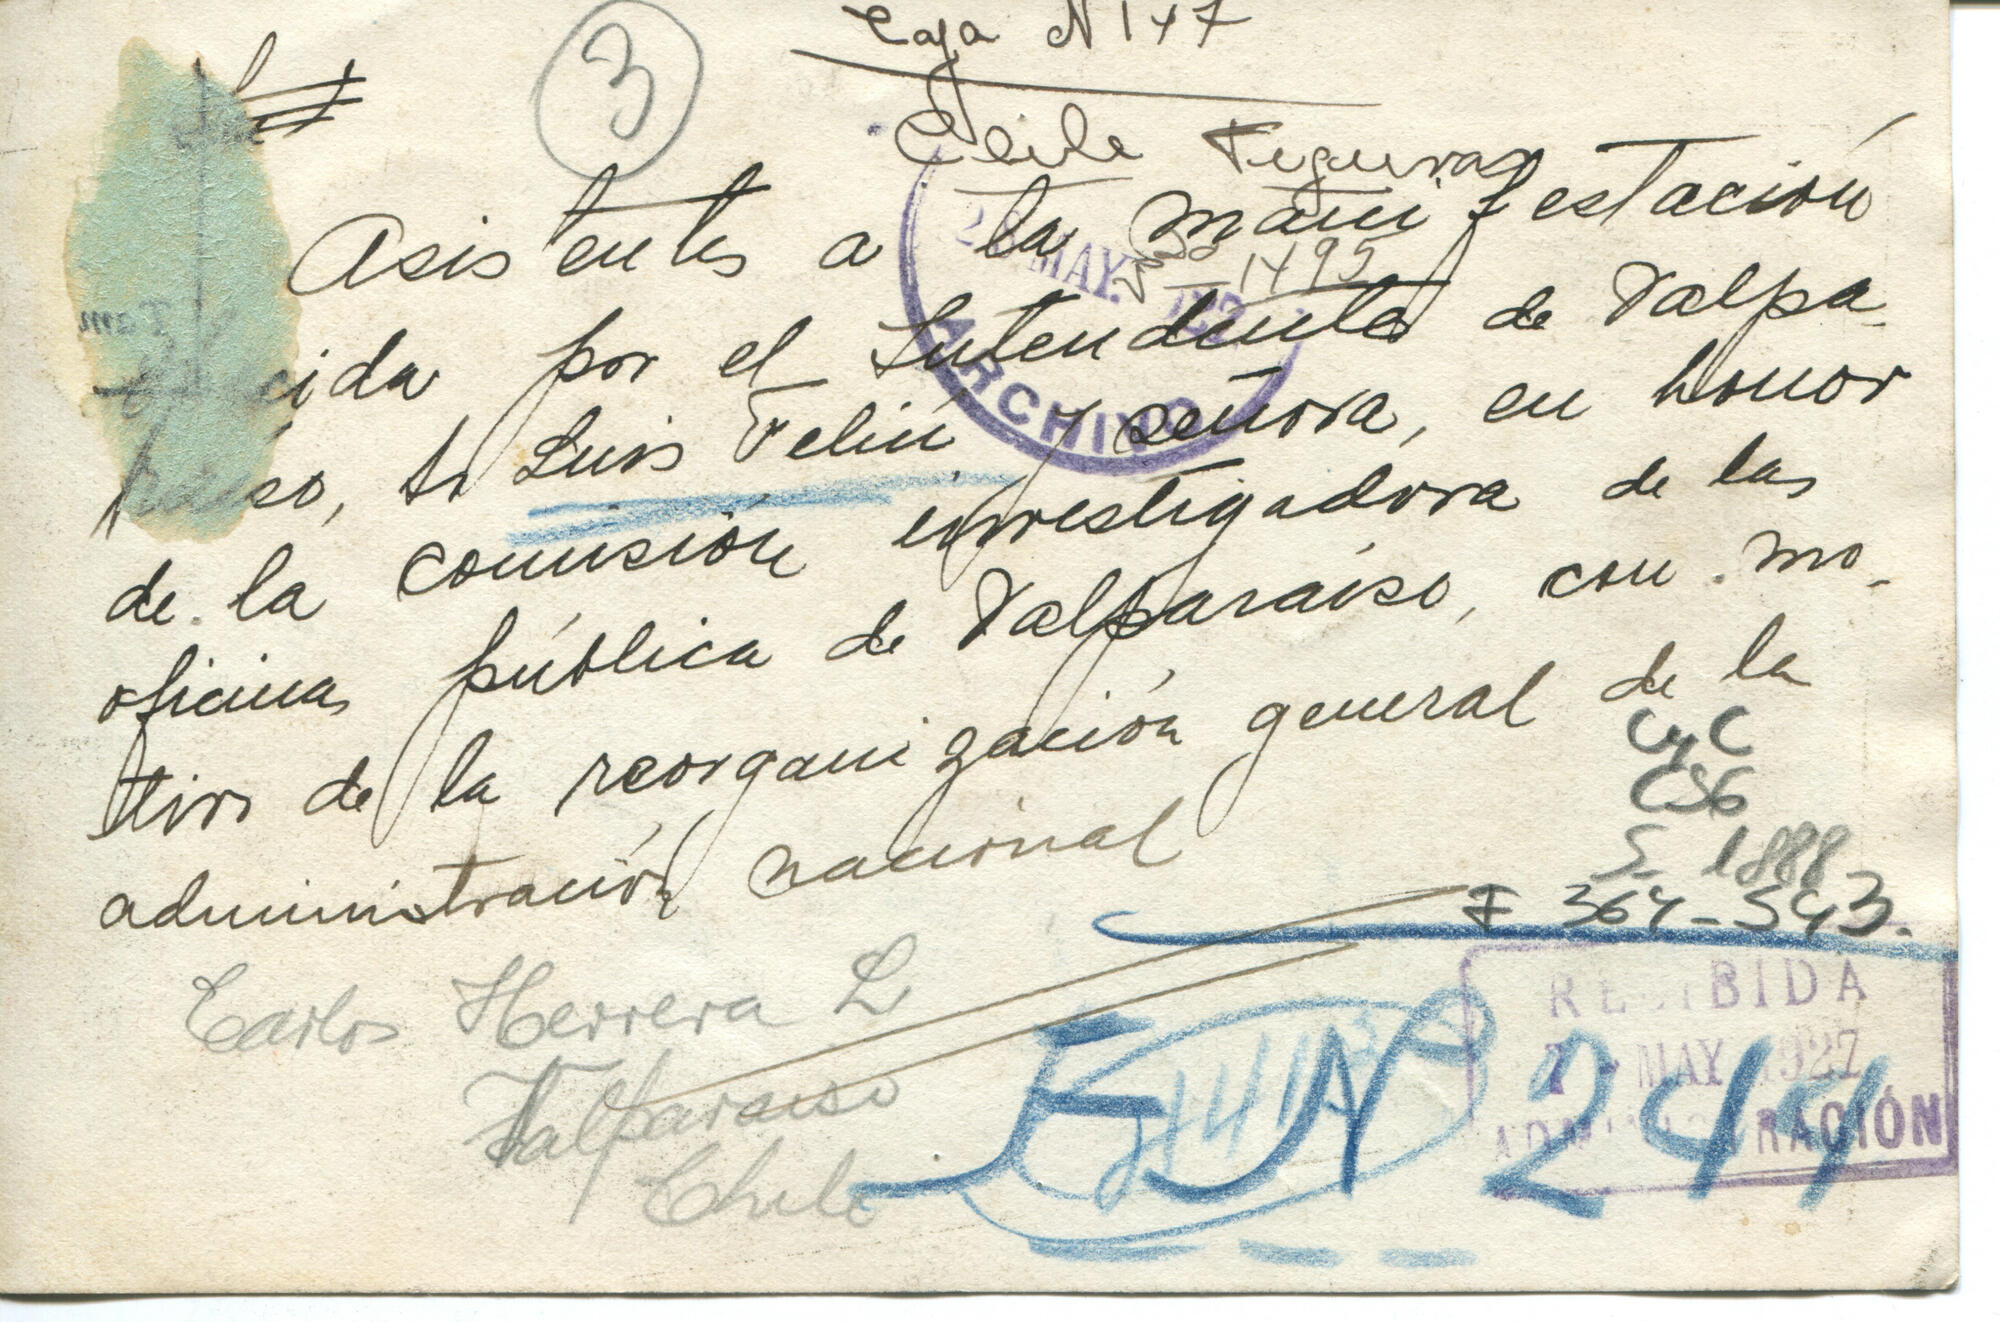 Caja N 147
3
Chile Figuras
Asistentes a la manifestación
28 MAY. 1927
1495
ofrecida por el Intendente de Valpa-
ARCHIVO
raíso, sr Luis Feliú y señora, en honor
de la comisión investigadora de las
oficinas pública de Valparaíso, con mo-
tivo de la reorganización general de la
administración nacional
CyC
C56
S. 1888
F 364-543.
Carlos Herrera L
Valparaiso
Chile
RECIBIDA
7 - MAY 1927
ADMINISTRACIÓN
EN 244